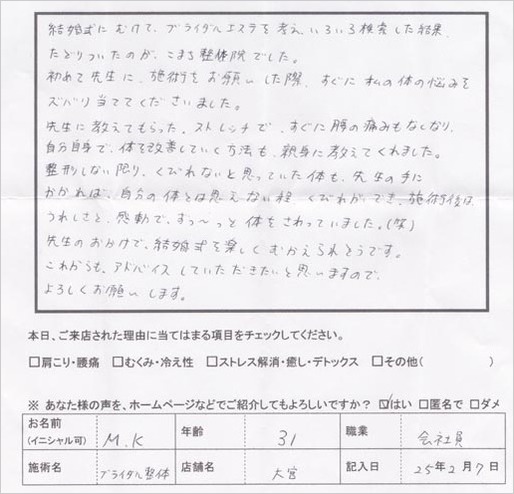 結婚式にむけて、ブライダルエステを考え、いろいろ検索した結果、
たどりついたのが、こまち整体院でした。
初めて先生に、施術をお願いした際、すぐに私の体の悩みを
ズバリ当ててくださいました。
先生に教えてもらった、ストレッチで、すぐに腰の痛みもなくなり、
自分自身で、体を改善していく方法も、親身に教えてくれました。
整形しない限り、くびれないと思っていた体も、先生の手に
かかれば、自分の体とは思えない程、くびれができ、施術後は、
うれしさと、感動で、ずっ〜っと体をさわっていました。(笑)
先生のおかげで、結婚式を楽しくむかえられそうです。
これからも、アドバイスしていただきたいと思いますので、
よろしくお願いします。
本日、ご来店された理由に当てはまる項目をチェックしてください。
□肩こり・腰痛 □むくみ・冷え性 □ストレス解消・癒し・デトックス □その他( )
※ あなた様の声を、ホームページなどでご紹介してもよろしいですか? ☑はい □匿名で □ダメ
お名前 (イニシャル可) M.K 年齢 31 職業 会社員
施術名 ブライダル整体 店舗名 大宮 記入日 25年2月7日